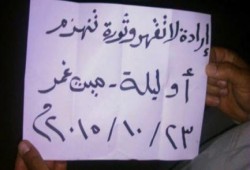 إرادة لا تقهر وثورة تنهزم
أوليلة - ميت غمر
٢٣ / ١٠ / ٢٠١٥ م